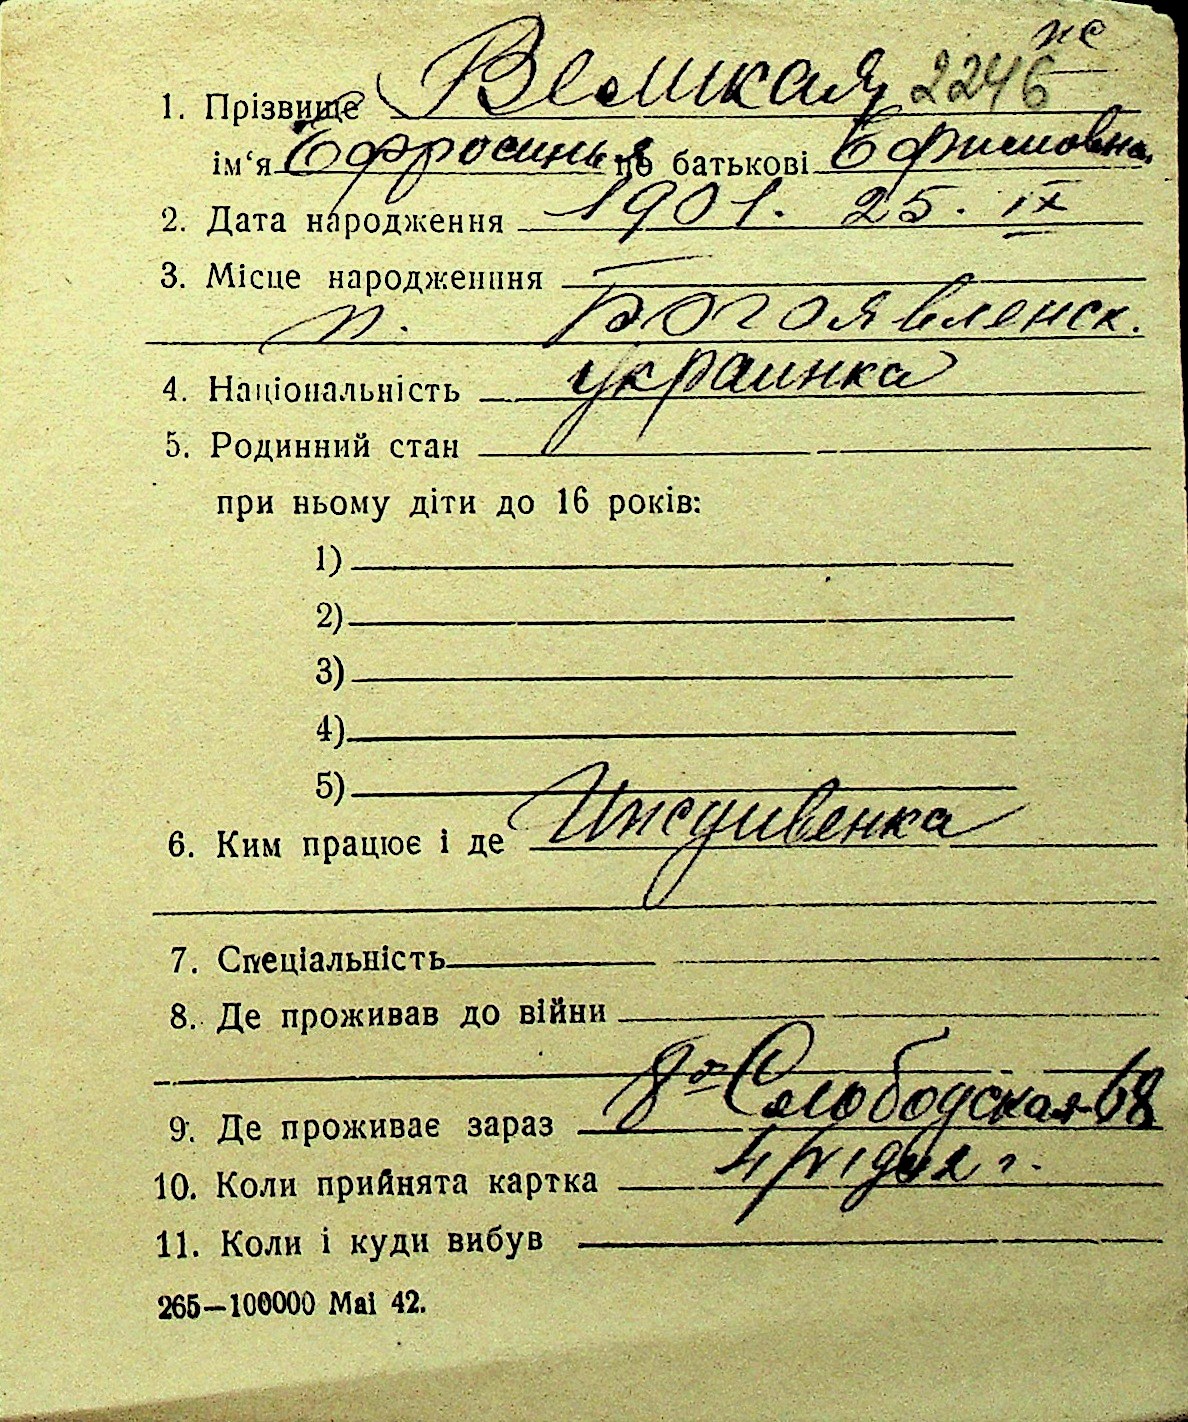 же
1. Прізвище Великая 2246
ім‘я Ефросинья по батькові Ефимовна
2. Дата народження 1901. 25. IX
3. Місце народженння
п. Богоявленск.
4. Національність украинка
5. Родинний стан
при ньому діти до 16 років:
1)
2)
3)
4)
5)
6. Ким працює і де Иждивенка
7. Спеціальність
8. Де проживав до війни
9. Де проживає зараз 8ая Слободская 68
10. Коли прийнята картка
11. Коли і куди вибув
265—100000 Mai 42.